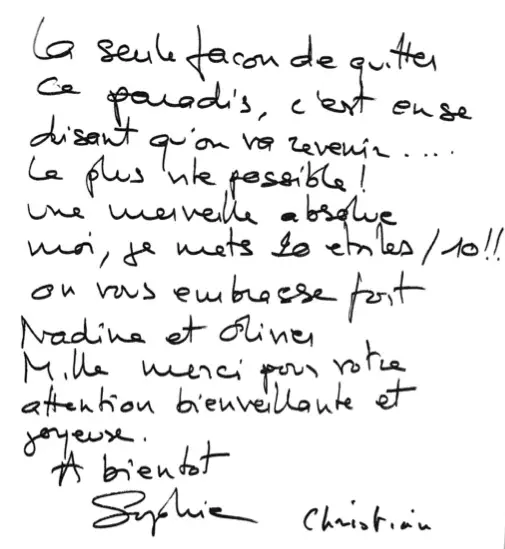 La seule façon de quitter
Ce paradis, c'est en se
disant qu'on va revenir....
Le plus vite possible!
une merveille absolue
moi, je mets 20 etoiles/10!!
on vous embrasse fort
Nadine et Olivier
Mille merci pour votre
attention bienveillante et
joyeuse.
A bientot
Sophie Christian